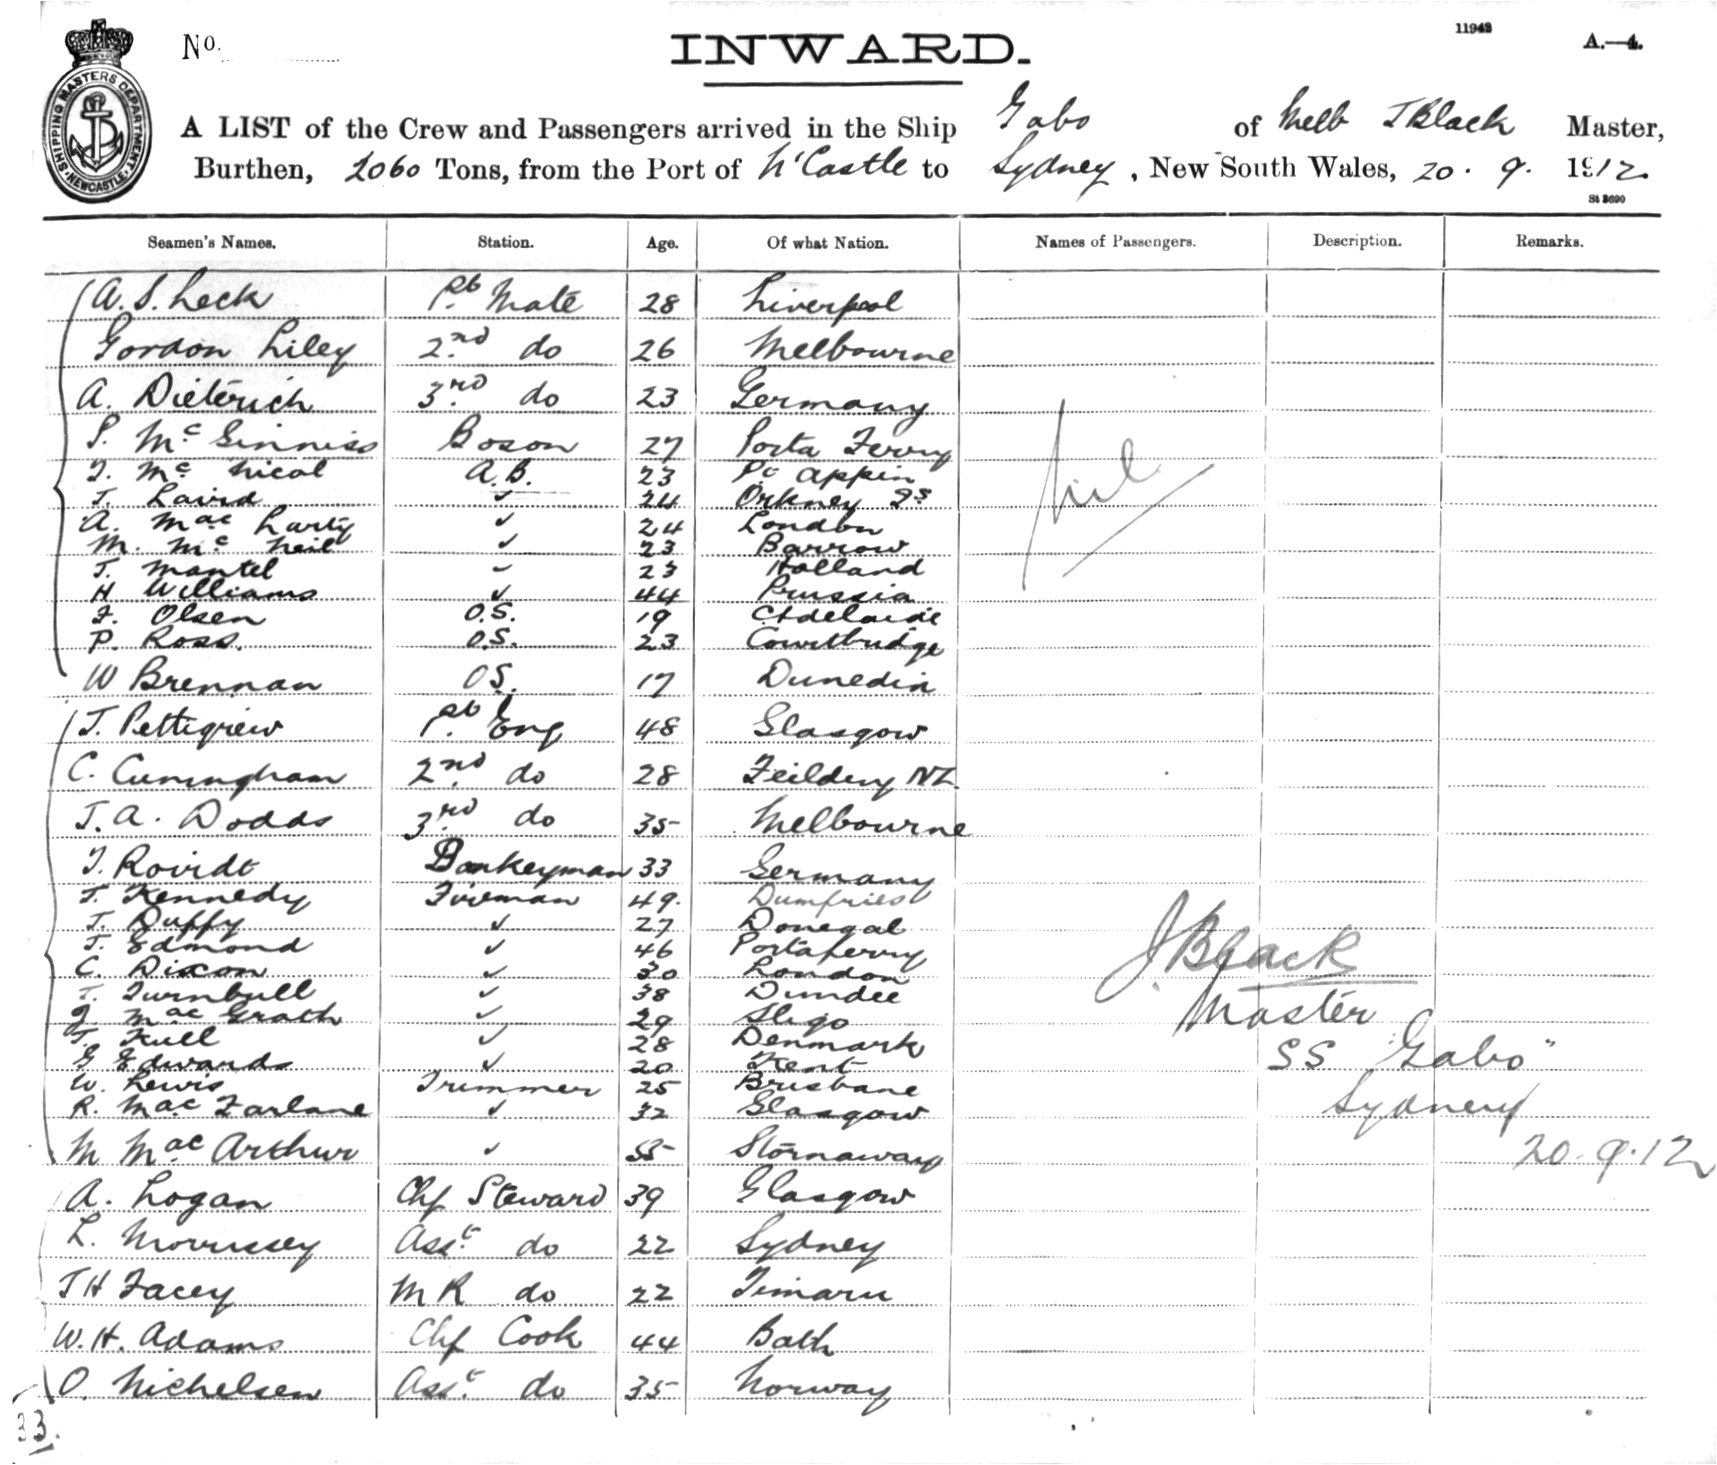 No.
INWARD.
11943
A.—4.
SHIPPING MASTERS DEPARTMENT
NEWCASTLE
A LIST of the Crew and Passengers arrived in the Ship Gabo of Melb J Black Master,
Burthen, 2060 Tons, from the Port of N'Castle to Sydney, New South Wales, 20.9. 1912.
St 3690
Seamen's Names. Station. Age. Of what Nation. Names of Passengers. Description. Remarks.
A. S. Leck 1st Mate 28 Liverpool
Gordon Liley 2nd do 26 Melbourne
A. Dieterich 3rd do 23 Germany
P. McGinniss Boson 27 Porta Ferry
McNicol A.B. 23 Pt Appin
Nil
J. Laird ✓ 24 Orkney Is
A. MacLarty ✓ 24 London
M. McNeil ✓ 23 Barrow
J. Mantel 23 Holland
H Williams ✓ 44 Prussia
F. Olsen O.S. 19 Adelaide
P. Ross. O.S. 23 Coatbridge
W Brennan O.S. 17 Dunedin
J. Pettigrew 1st Eng 48 Glasgow
C. Cuningham 2nd do 28 Feilding NZ
J. A. Dodds 3rd do 35 Melbourne
Donkeyman 33 Germany
Kennedy Fireman 49. Dumfries
J. Duffy ✓ 27 Donegal
J. Edmond ✓ 46 Portaferry
C. Dixon ✓ 30 London
J. Black
T. Turnbull ✓ 38 Dundee
MacGrath ✓ 29 Sligo
Master
28 Denmark
SS "Gabo"
G Edwards ✓ 20 Kent
W. Lewis Trimmer 25 Brisbane
R. MacFarlane ✓ 32 Glasgow
Sydney
M MacArthur ✓ 55 Stornaway
20.9.12
A. Logan Chf Steward 39 Glasgow
L. Morrissey Asst do 22 Sydney
J H Facey M R do 22 Timaru
W. H. Adams Chf Cook 44 Bath
O. Nichelsen Asst do 35 Norway
33.